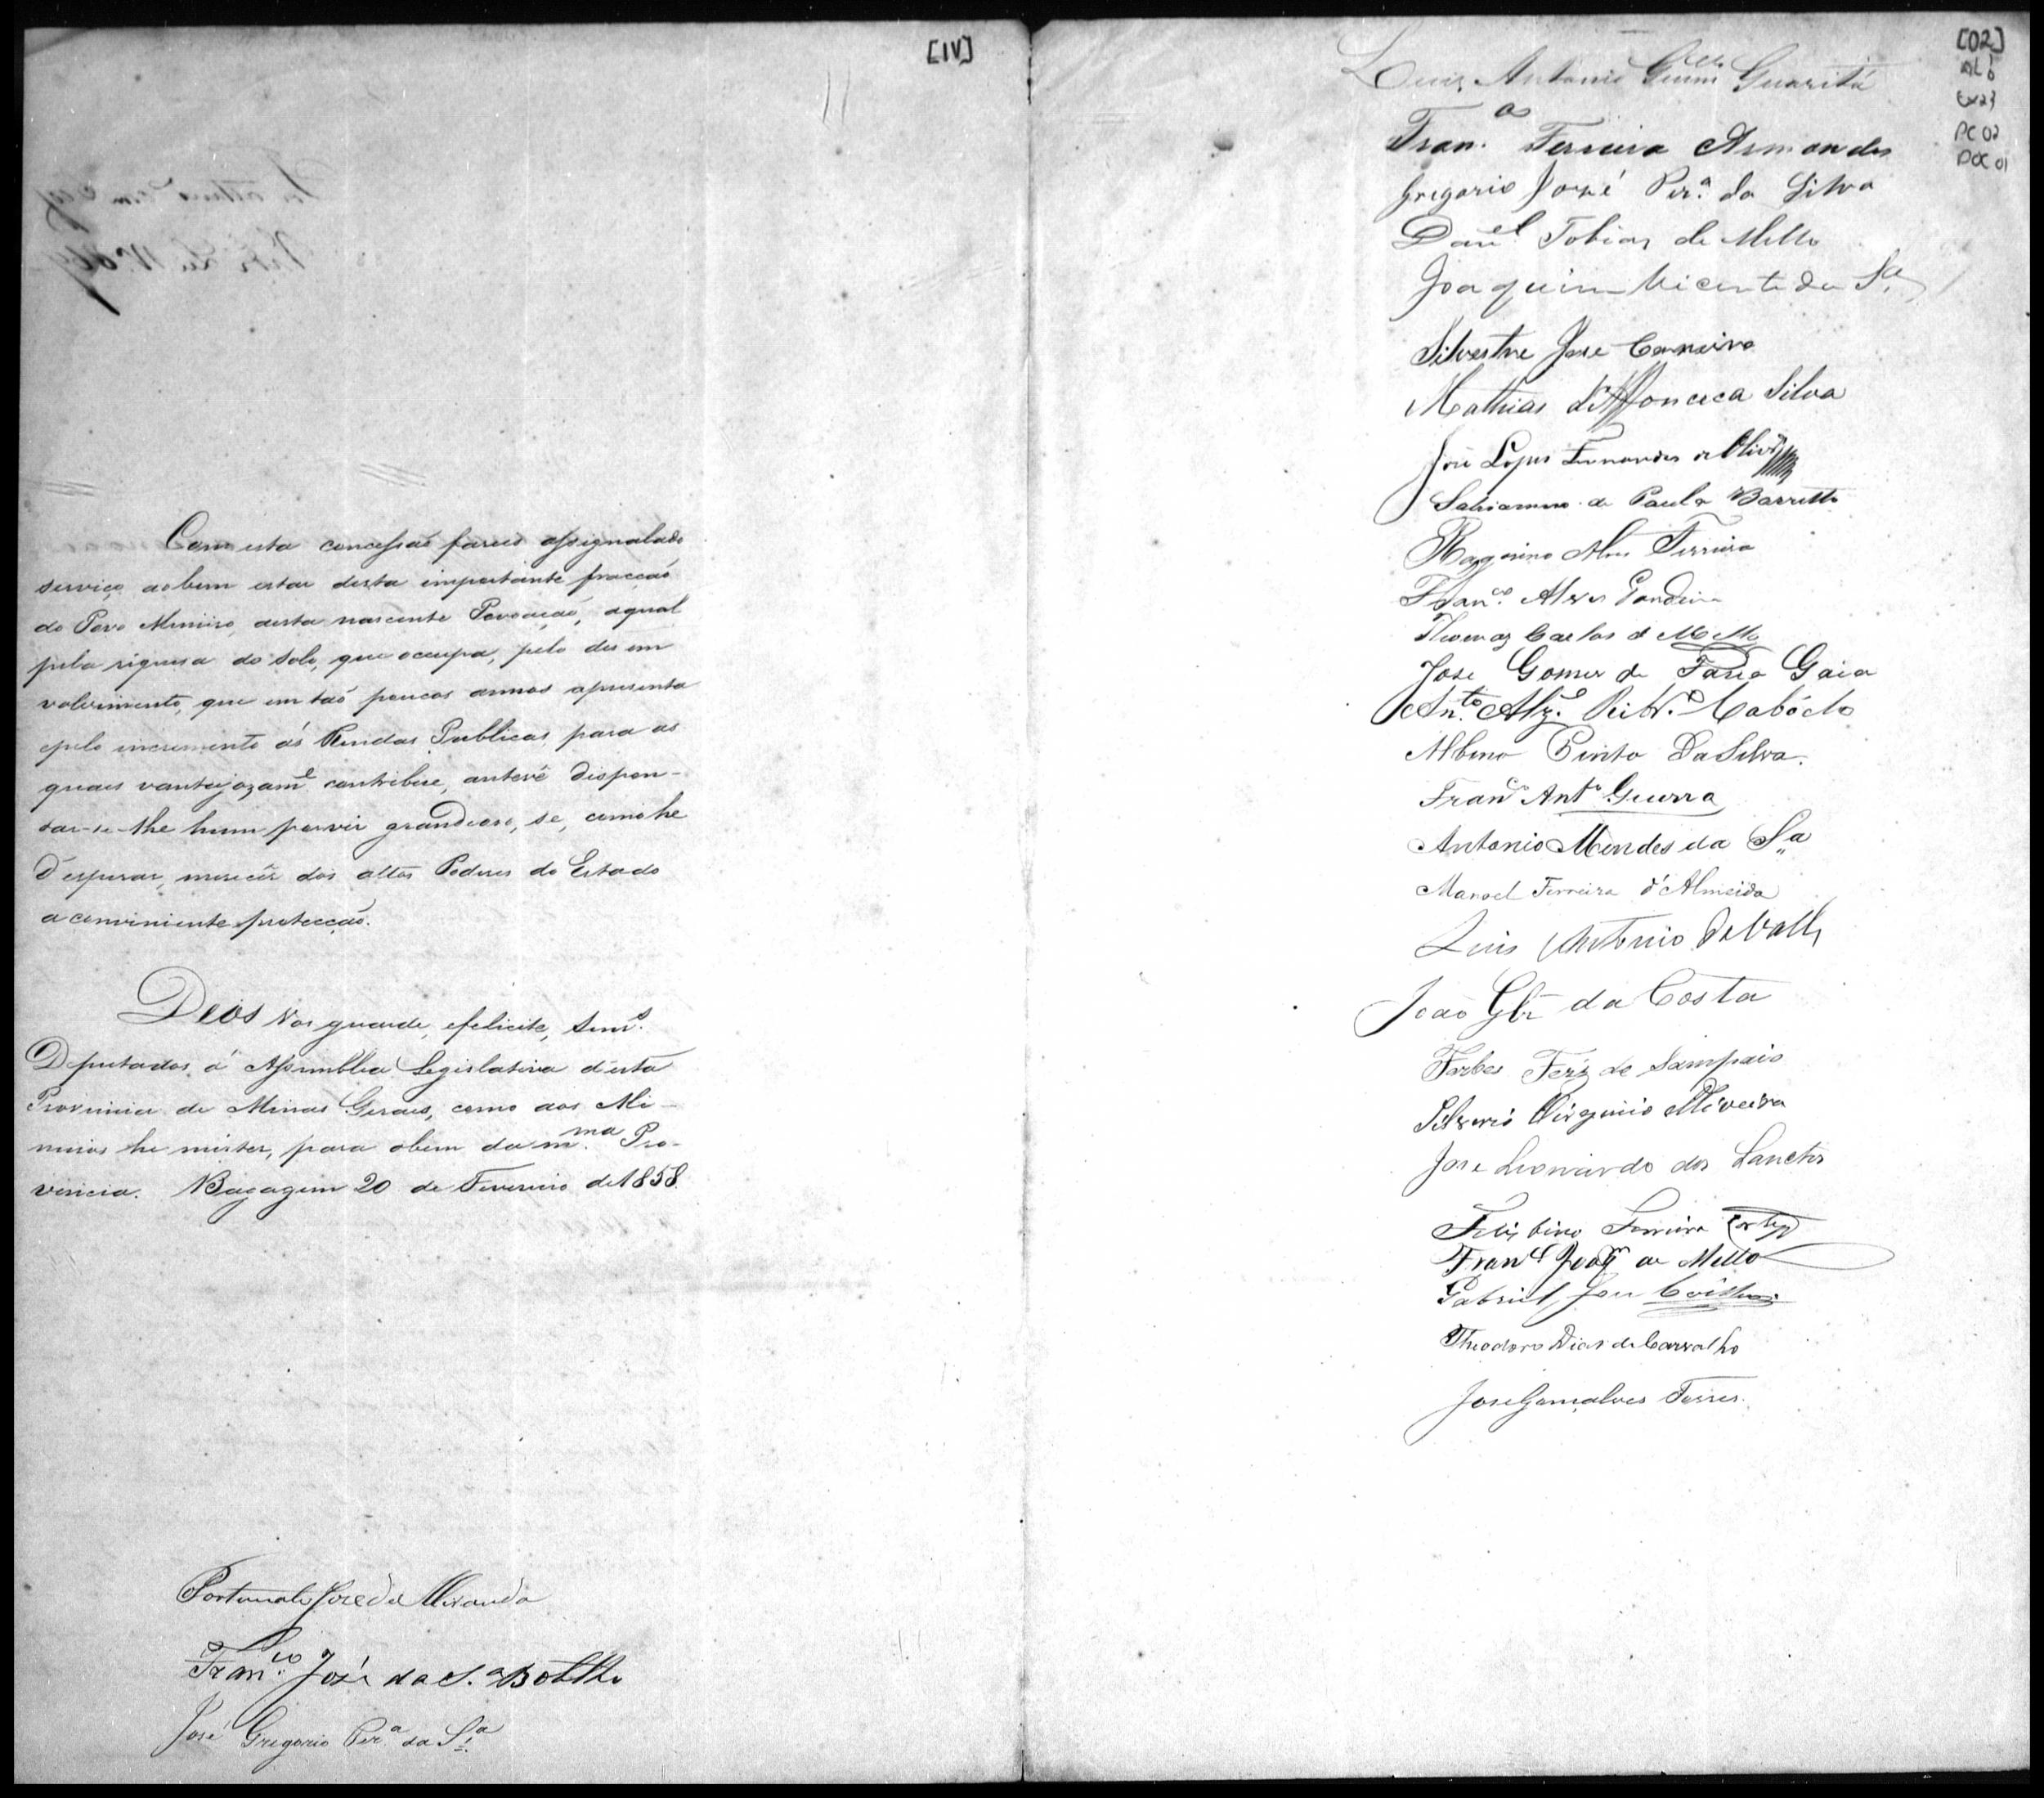 [IV]
Com esta concessaõ fareis assignalado
serviço ao bem estar desta importante fracçaõ
do Povo Mineiro, desta nascente Povoaçaõ, aqual
pela riquesa do solo, que occupa, pelo desem
volvimento, que em taõ poucos annos apresenta
epelo incremento ás Rendas Publicas, para as
quaes vantajozam.e contribue, antevê
se-lhe hum porvir grandioso, se, como he
d'esperar, merecêr dos altos Poderes do Estado
a conviniente protecçaõ.
Deos Vos guarde, efelicite, Senr.s
Deputados á Assemblea Legislativa d'esta
Provincia de Minas Geraes, como aos Mi-
neiros he mister, para obem da m.ma Pro-
vincia. Bagagem 20 de Fevereiro de 1858.
Fortunato José de Miranda
Fran.co José da S.a Botelho
José Gregorio Per.a da S.a
[02]
AL 6
CX 23
PC 02
DOC 01
Luiz Antonio Guarita
Fran.co Ferreira Armondes
Gregorio José Per.a da Silva
Dan.el Tobias de Mello
Joaquim Vicente da S.a
Silvestre Jose Carneiro
Mathias Fonceca Silva
José Lopes Fernandes de Oliv.ra
de Paula Barretto
Alves Ferreira
Fran.co Alves Gondim
Thomaz Carlos de Mello
Jose Gomes de Faria Gaia
Ant.o Alz. Ribr.o Cabóclo
Albino Pinto Da Silva.
Fran.co Ant.o Guerra
Antonio Mendes da S.a
Manoel Ferreira d'Almeida
Luis Antonio do Valle
João Glz da Costa
Forbes Ferz de Sampaio
Silverio Virginio Oliveira
Jose Leonardo dos Sanctos
Felisbino Ferreira
Fran.co Joaq.m de Mello
Gabriel Jose Coelho
Theodoro Dias de Carvalho
Jose Gonçalves Torres.